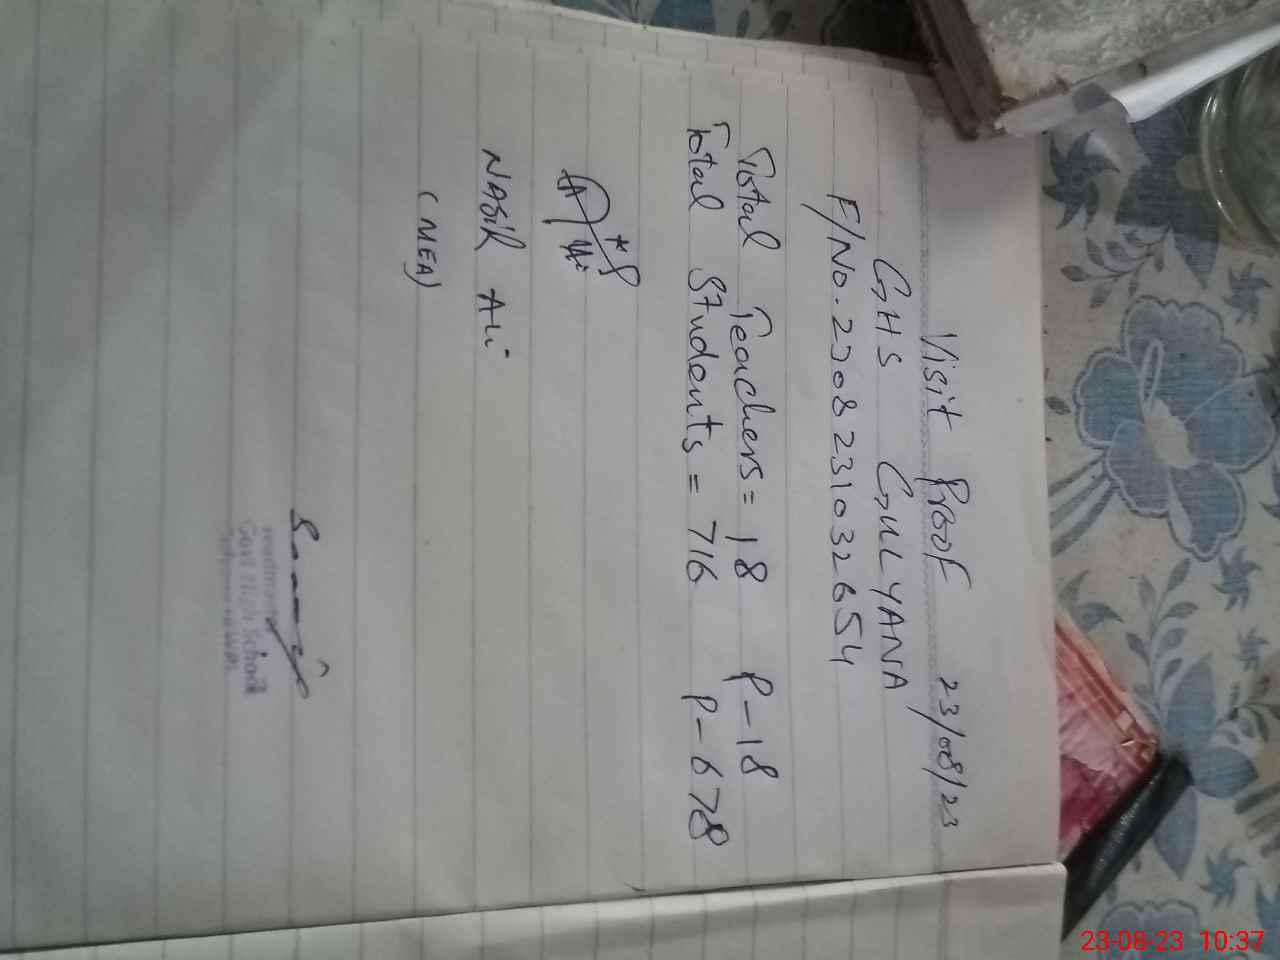 Visit Proof 23/08/23
GHS GULYANA
F/No. 230823103265４
Total Teachers = 18 P-18
Total Students = 716 P-678
NASIR Ali
(MEA)
Govt High School
23-08-23 10:37